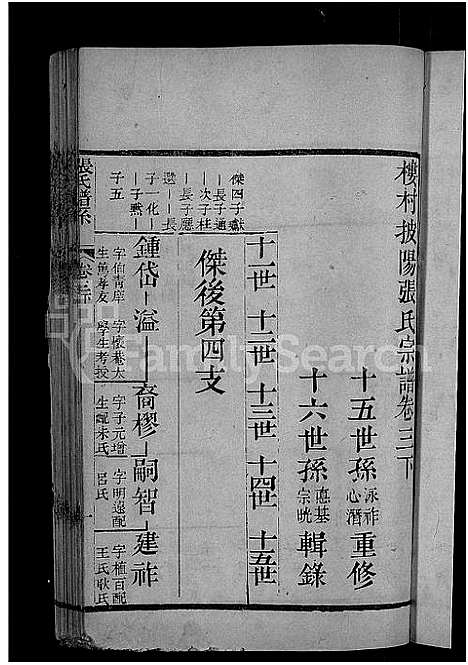 樓村披陽張氏宗譜卷三下
十五世孫泳祚心潛重修
十六世孫惪基宗晄輯錄
十一世 十二世 十三世 十四世 十五世
傑後第四支
傑四子獻
長子通
次子柱
長子應
選
長子化
子熏
子五
鍾岱 溢 裔樛 嗣智 建祚
字伯青庠生篤孝友
字懷菴太學生考授
字子元增生配朱氏
字明遠配呂氏
字植百配王氏耿氏
張氏譜系
卷之三
一
FamilySearch